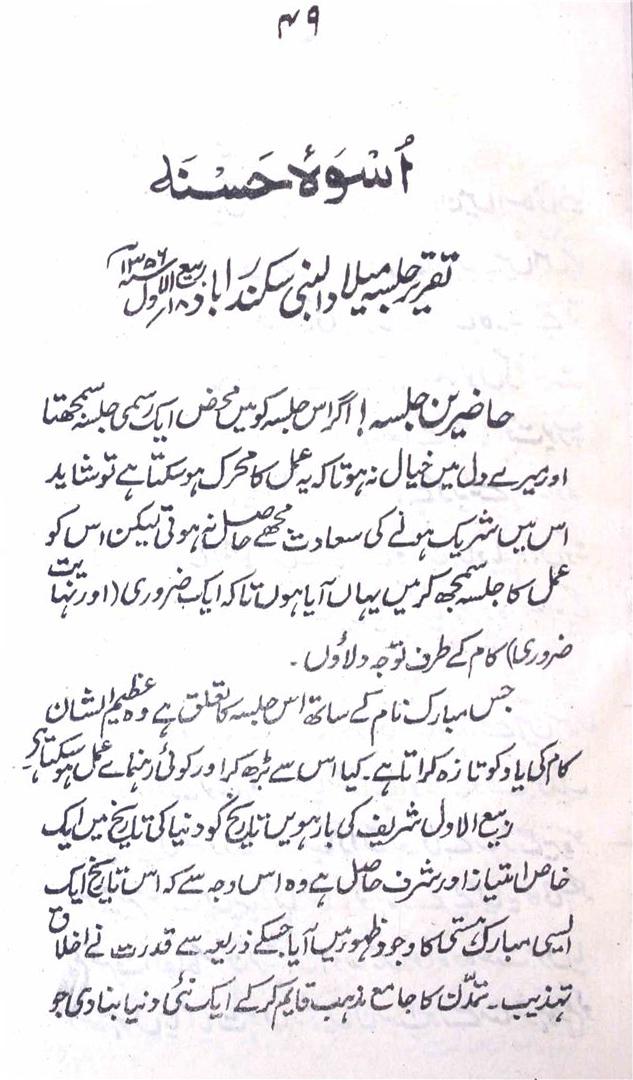 ۴۹
اُسْوَۂ حَسَنَه
تقریر جلسہ میلاد النبی سکندرآباد ۱۸ ربیع الاول سنہ ۱۳۵۶
حاضرین جلسہ! اگر اس جلسہ کو میں محض ایک رسمی جلسہ سمجھتا
اور میرے دل میں خیال نہ ہوتا کہ یہ عمل کا محرک ہو سکتا ہے تو شاید
اس میں شریک ہونے کی سعادت مجھے حاصل نہ ہوتی لیکن اس کو
عمل کا جلسہ سمجھ کر میں یہاں آیا ہوں تاکہ ایک ضروری (اور نہایت
ضروری) کام کے طرف توجہ دلاؤں ۔
جس مبارک نام کے ساتھ اس جلسہ کا تعلق ہے وہ عظیم الشان
کام کی یاد کو تازہ کراتا ہے۔ کیا اس سے بڑھ کر اور کوئی رہنمائے عمل ہو سکتا ہے
ربیع الاول شریف کی بارہویں تاریخ کو دنیا کی تاریخ میں ایک
خاص امتیاز اور شرف حاصل ہے وہ اس وجہ سے کہ اس تاریخ ایک
ایسی مبارک ہستی کا وجود ظہور میں آیا جسکے ذریعہ سے قدرت نے اخلاق
تہذیب۔ تمدّن کا جامع مذہب قایم کر کے ایک نئی دنیا بنادی جو